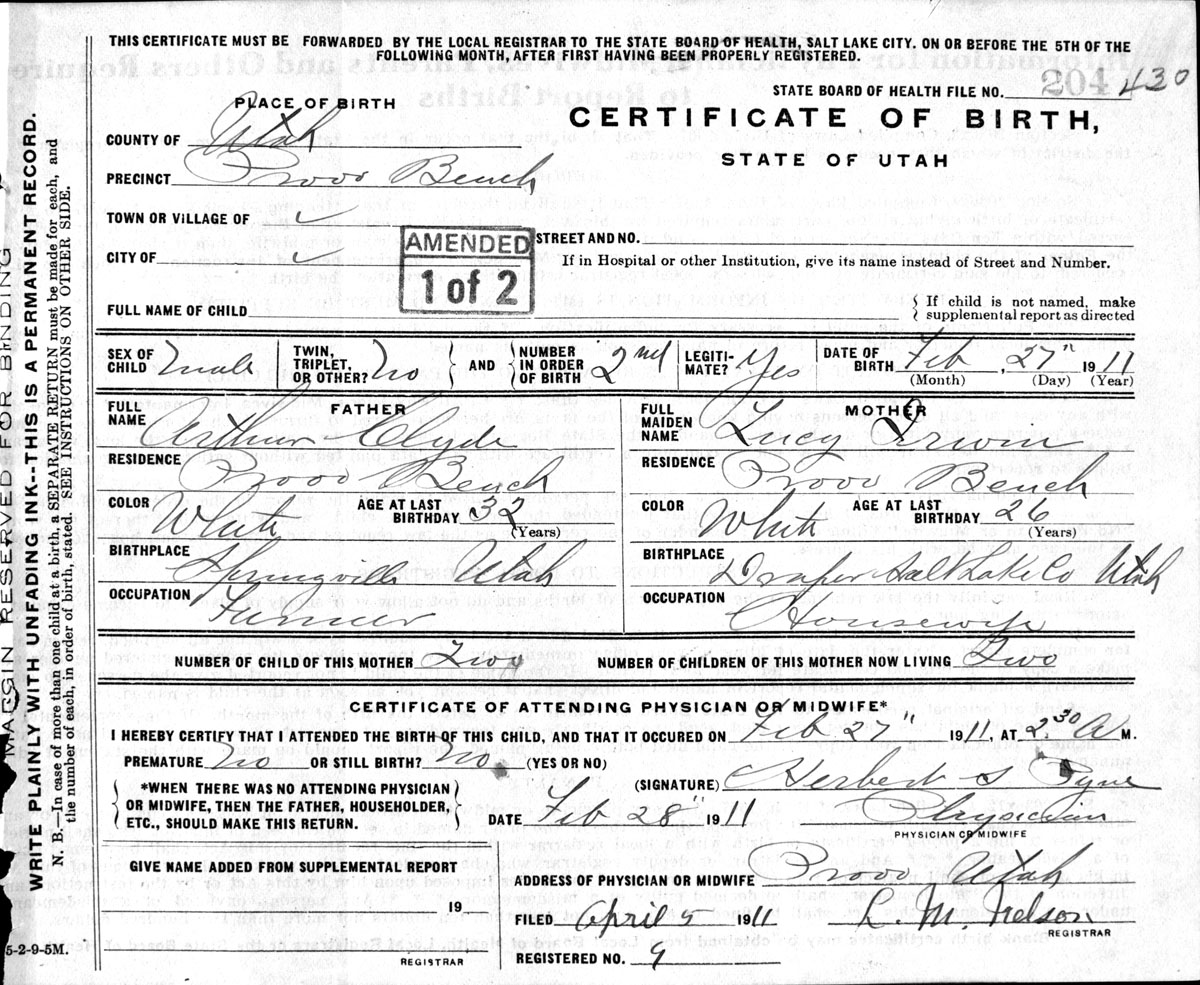 THIS CERTIFICATE MUST BE FORWARDED BY THE LOCAL REGISTRAR TO THE STATE BOARD OF HEALTH, SALT LAKE CITY. ON OR BEFORE THE 5TH OF THE
FOLLOWING MONTH, AFTER FIRST HAVING BEEN PROPERLY REGISTERED.
STATE BOARD OF HEALTH FILE NO. 204 430
PLACE OF BIRTH
CERTIFICATE OF BIRTH,
COUNTY OF Utah
STATE OF UTAH
PRECINCT Provo Bench
TOWN OR VILLAGE OF ✓
AMENDED
1 of 2
STREET AND NO.
CITY OF ✓
If in Hospital or other Institution, give its name instead of Street and Number.
FULL NAME OF CHILD
{ If child is not named, make
supplemental report as directed
SEX OF CHILD Male
TWIN, TRIPLET, OR OTHER? No
AND
NUMBER IN ORDER OF BIRTH 2nd
LEGITIMATE? Yes
DATE OF BIRTH Feb, 27" 1911
(Month) (Day) (Year)
FATHER
FULL NAME Arthur Clyde
RESIDENCE Provo Bench
COLOR White
AGE AT LAST BIRTHDAY 32
(Years)
BIRTHPLACE Springville Utah
OCCUPATION Farmer
MOTHER
FULL MAIDEN NAME Lucy Orwin
RESIDENCE Provo Bench
COLOR White
AGE AT LAST BIRTHDAY 26
(Years)
BIRTHPLACE Draper Salt Lake Co Utah
OCCUPATION Housewife
NUMBER OF CHILD OF THIS MOTHER Two
NUMBER OF CHILDREN OF THIS MOTHER NOW LIVING Two
CERTIFICATE OF ATTENDING PHYSICIAN OR MIDWIFE*
I HEREBY CERTIFY THAT I ATTENDED THE BIRTH OF THIS CHILD, AND THAT IT OCCURED ON Feb 27" 1911, AT 2.30 A M.
PREMATURE No OR STILL BIRTH? No (YES OR NO)
*WHEN THERE WAS NO ATTENDING PHYSICIAN
OR MIDWIFE, THEN THE FATHER, HOUSEHOLDER,
ETC., SHOULD MAKE THIS RETURN.
(SIGNATURE) Herbert S Pyne
DATE Feb 28" 1911
Physician
PHYSICIAN OR MIDWIFE
GIVE NAME ADDED FROM SUPPLEMENTAL REPORT
19
REGISTRAR
ADDRESS OF PHYSICIAN OR MIDWIFE Provo Utah
FILED April 5 1911
L. M. Nelson
REGISTRAR
REGISTERED NO. 9
MARGIN RESERVED FOR BINDING
WRITE PLAINLY WITH UNFADING INK--THIS IS A PERMANENT RECORD.
N. B.—In case of more than one child at a birth, a SEPARATE RETURN must be made for each, and
the number of each, in order of birth, stated. SEE INSTRUCTIONS ON OTHER SIDE.
5-2-9-5M.